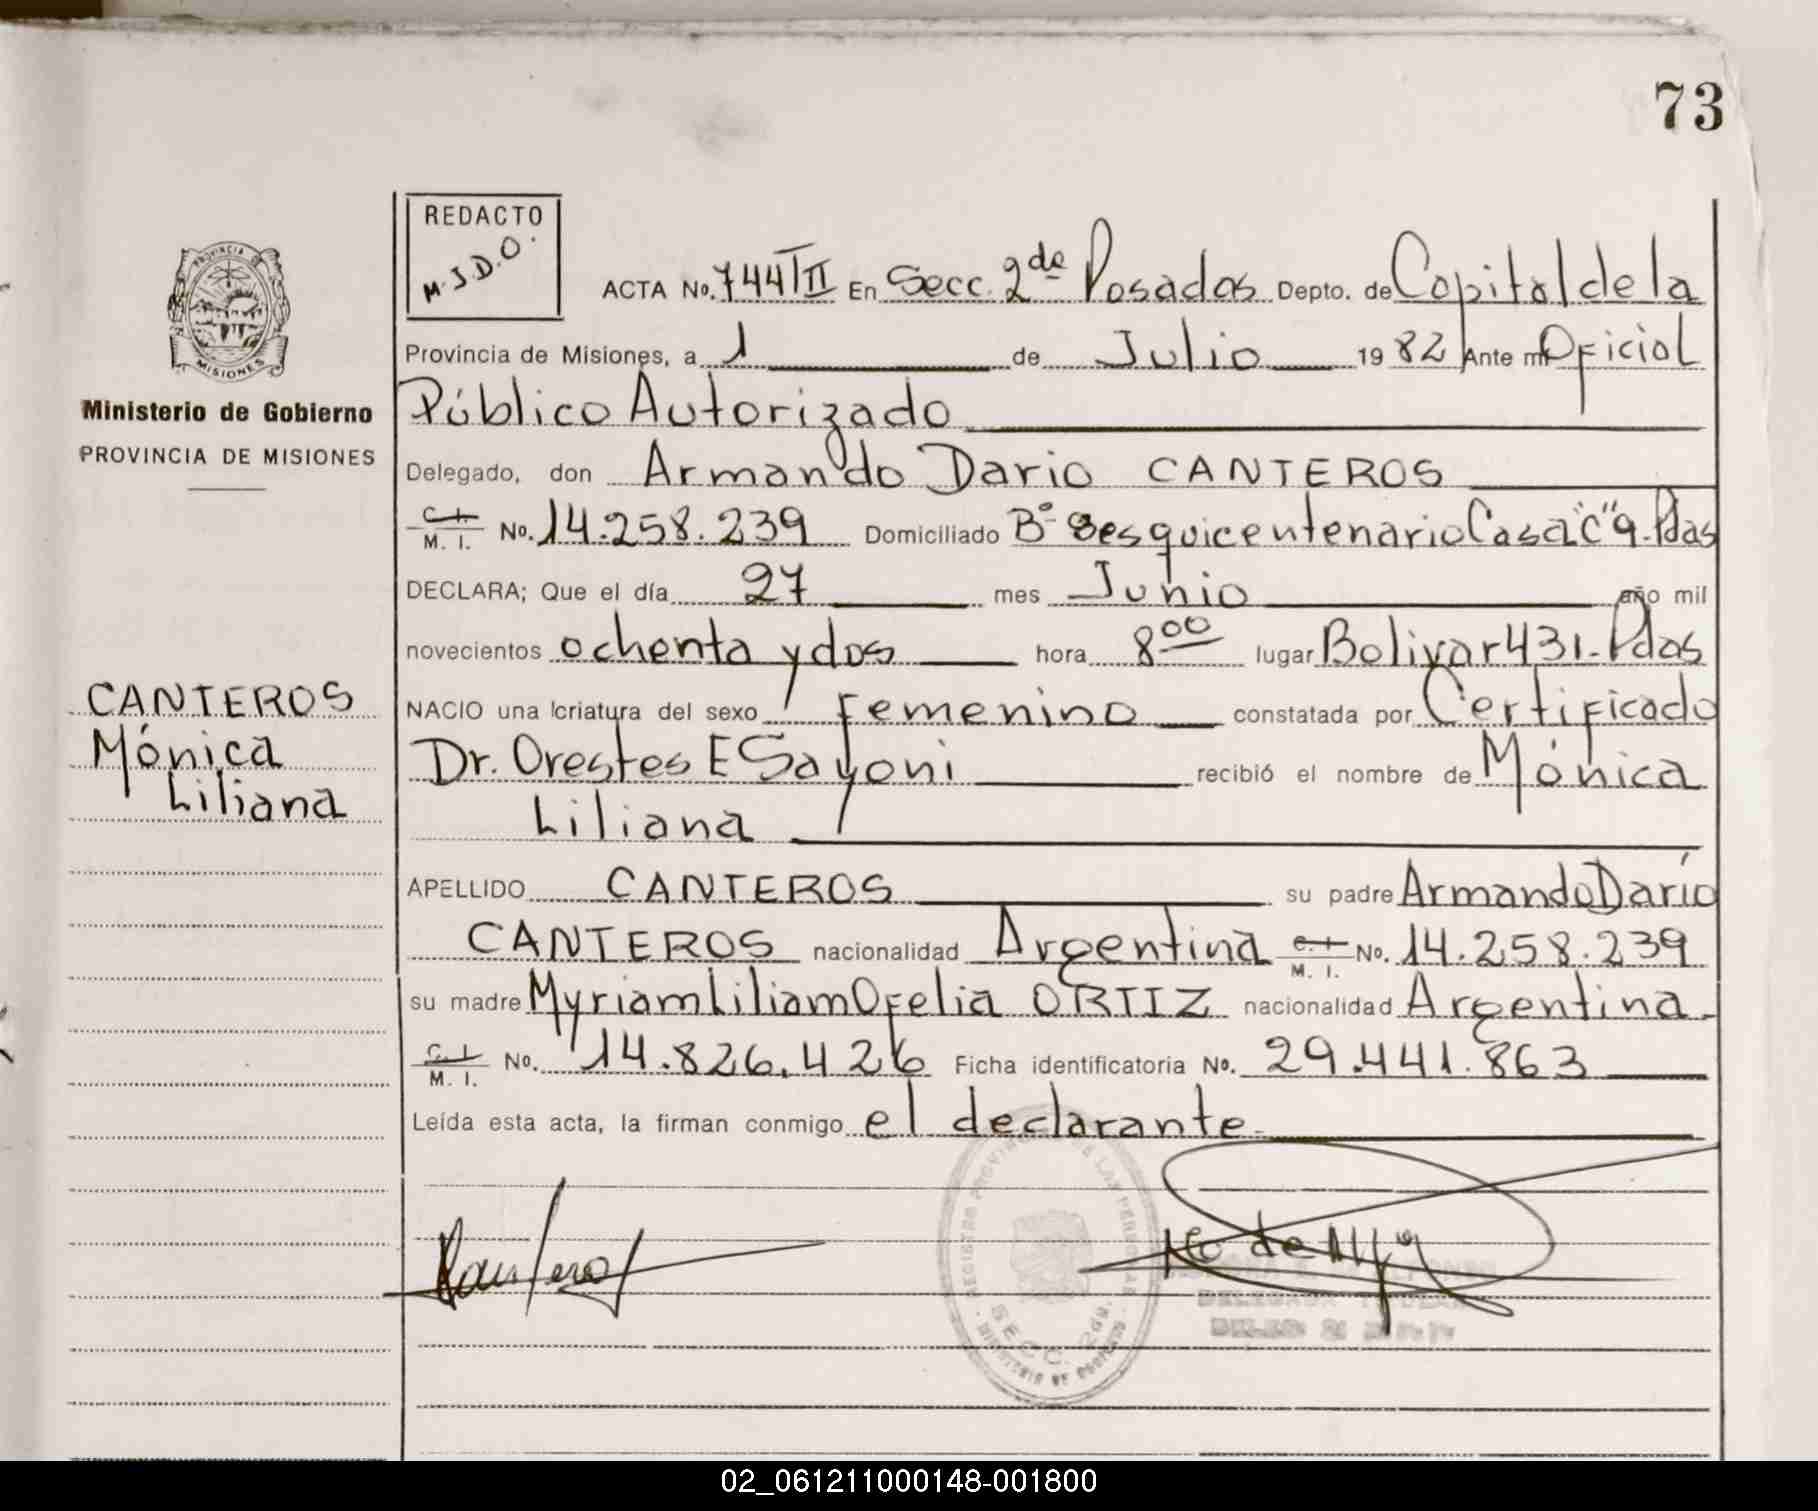 73
REDACTO
M.J.D.O.
PROVINCIA DE
MISIONES
ACTA No. 744/II En Secc. 2da Posadas Depto. de Capital de la
Provincia de Misiones, a 1 de Julio 1982 Ante mi Oficial
Ministerio de Gobierno
Público Autorizado
PROVINCIA DE MISIONES
Delegado, don Armando Dario CANTEROS
C. I.
M. I. No. 14.258.239 Domiciliado Bº Sesquicentenario Casa "C" 9. Pdas
DECLARA; Que el día 27 mes Junio año mil
novecientos ochenta y dos hora 8 00 lugar Bolivar 431. Pdas
CANTEROS
NACIO una criatura del sexo Femenino constatada por Certificado
Mónica
Dr. Orestes E recibió el nombre de Mónica
Liliana
Liliana
APELLIDO CANTEROS su padre Armando Darío
CANTEROS nacionalidad Argentina C. I.
M. I. No. 14.258.239
su madre Myriam Liliam Ofelia ORTIZ nacionalidad Argentina.
C. I.
M. I. No. 14.826.426 Ficha identificatoria No. 29.441.863
Leída esta acta, la firman conmigo el declarante.
REGISTRO PROVINCIAL DE LAS PERSONAS
SECC. 2da.
MINISTERIO DE GOBIERNO
Canteros
DELEGADA TITULAR
02_061211000148-001800